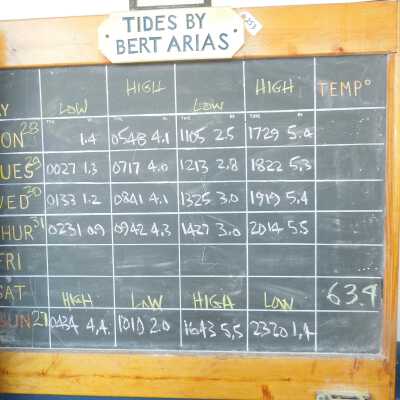 TIDES BY
BERT ARIAS
HIGH HIGH TEMP°
AY LOW LOW
ON 28 1.4 0548 4.1 1105 2.5 1729 5.4
UES 29 0027 1.3 0717 4.0 1213 2.8 1822 5.3
ED 30 0133 1.2 0841 4.1 1325 3.0 1919 5.4
HUR 31 0231 0.9 0942 4.3 1427 3.0 2014 5.5
FRI
SAT HIGH LOW HIGH LOW 63.9
SUN 27 0434 4.4 1010 2.0 1643 5.5 2320 1.4